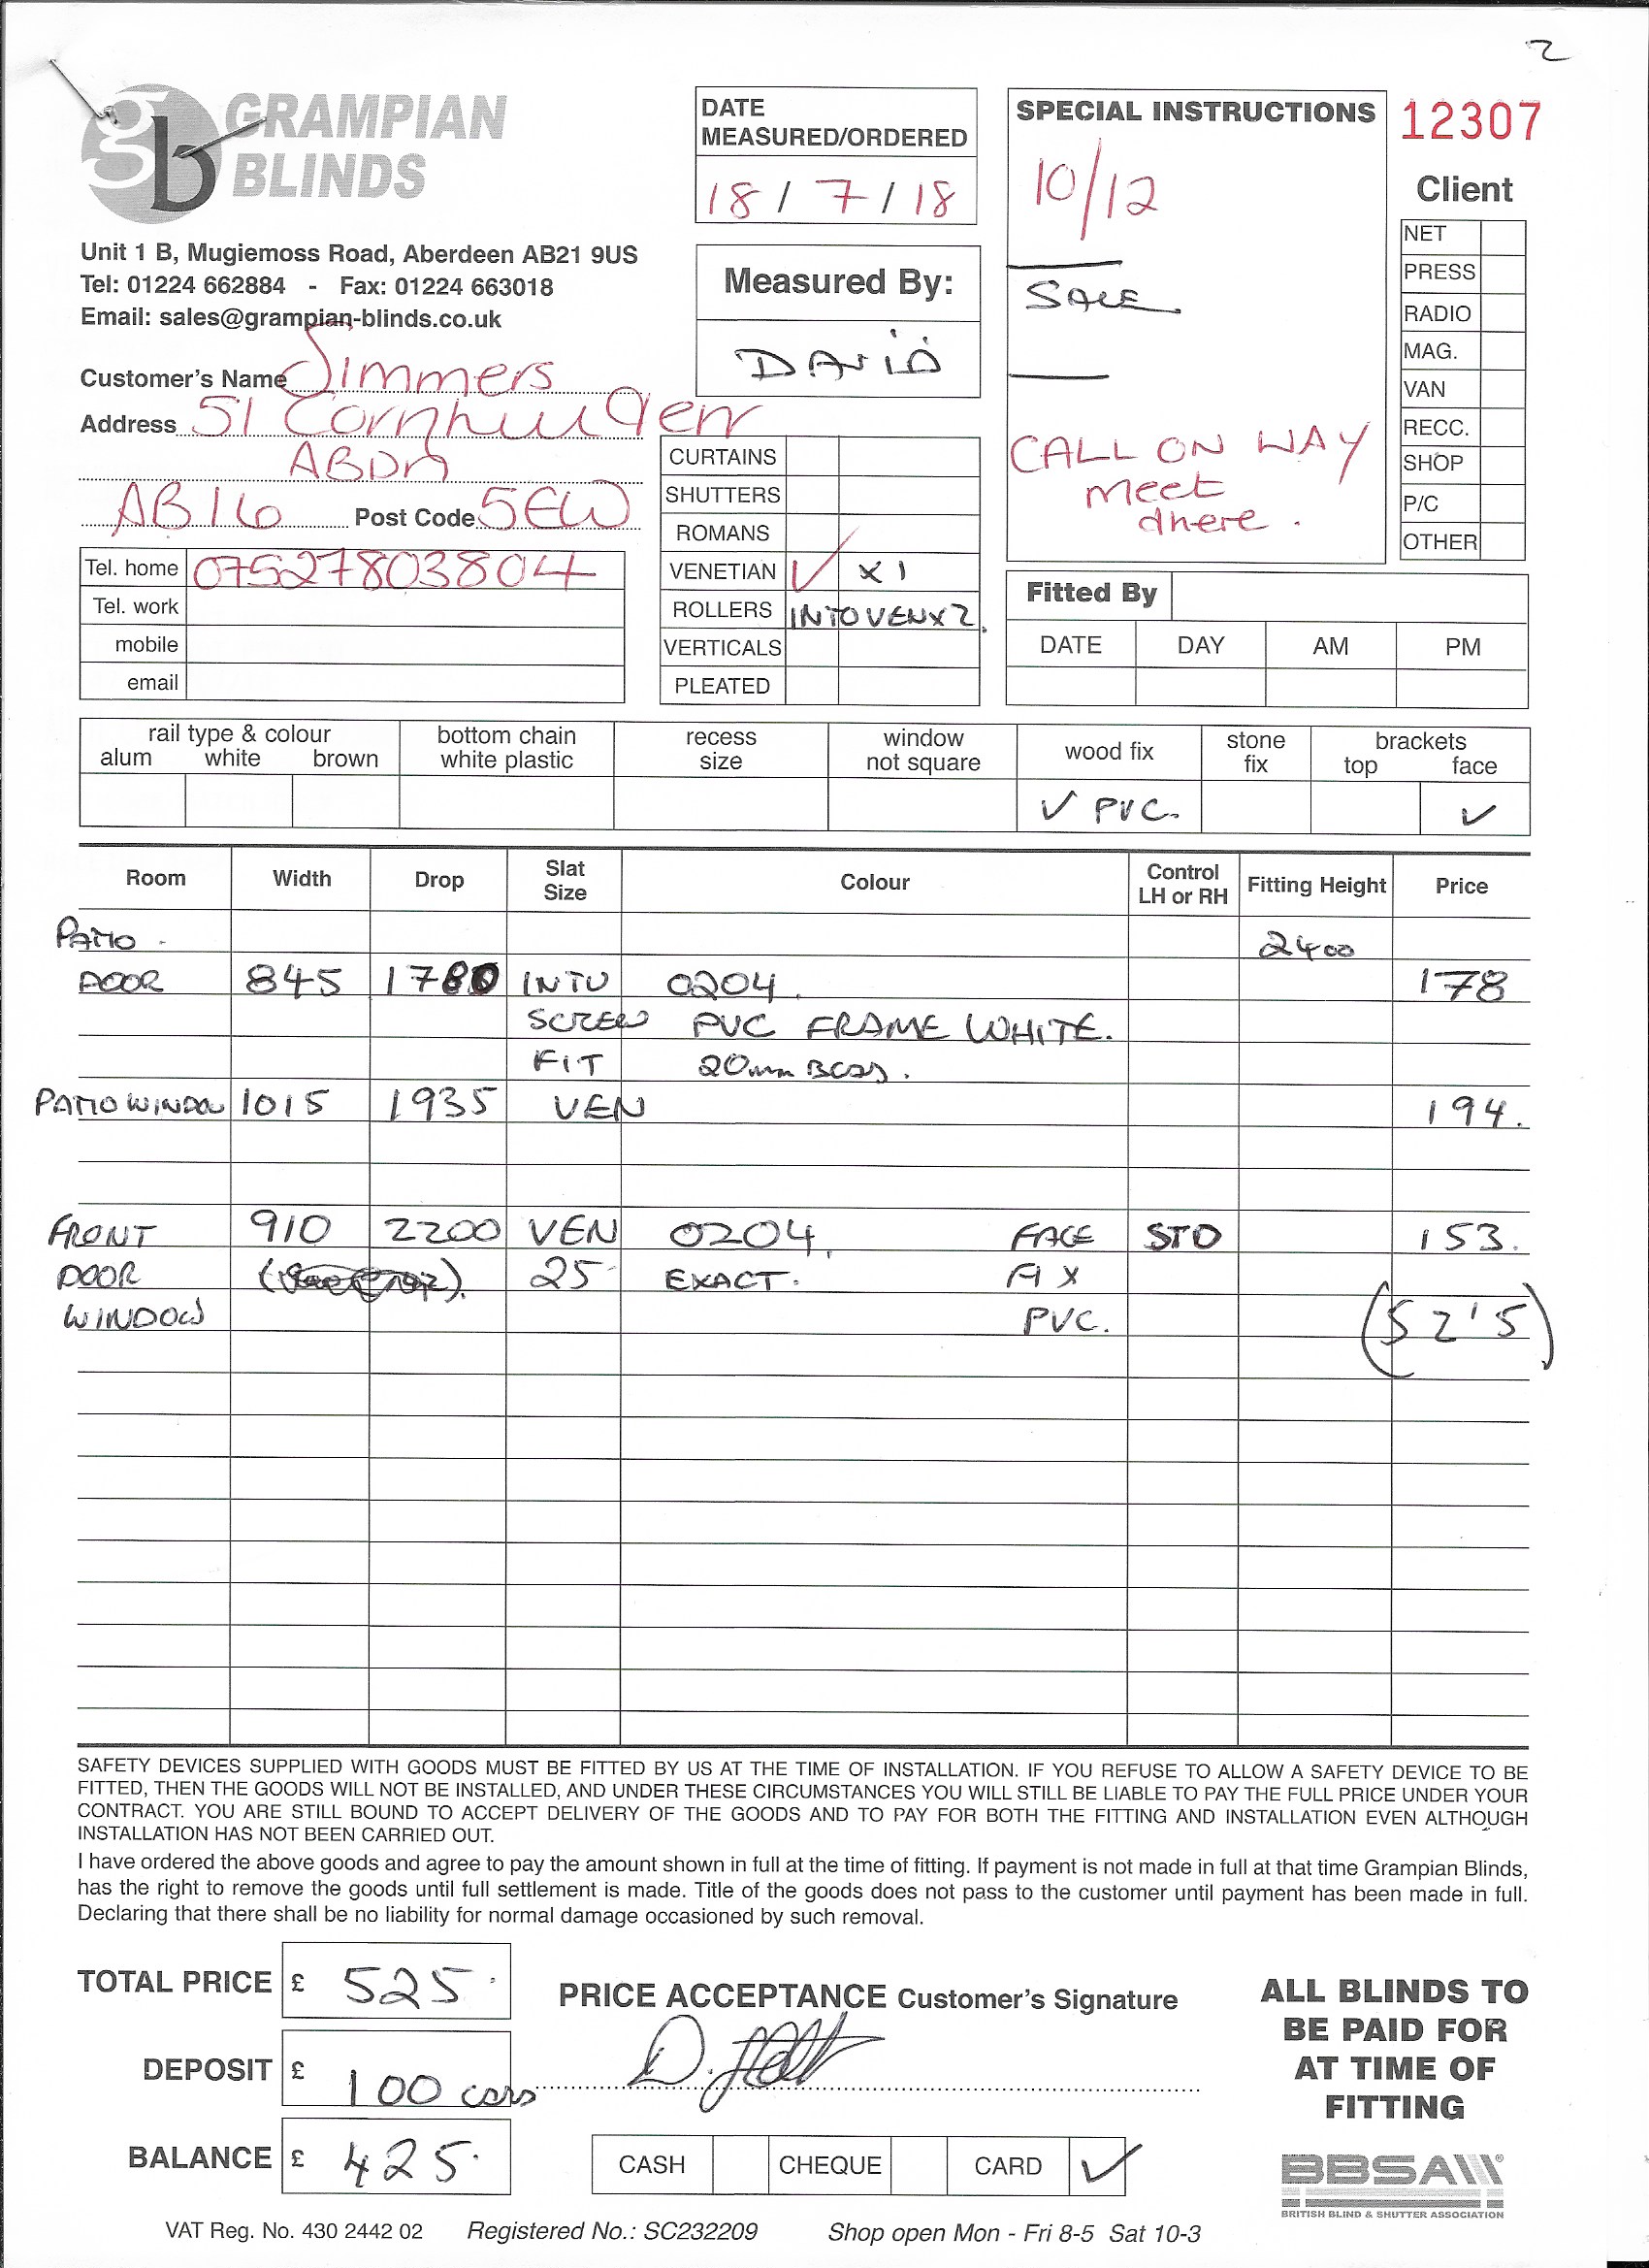 2
GRAMPIAN
BLINDS
Unit 1 B, Mugiemoss Road, Aberdeen AB21 9US
Tel: 01224 662884 - Fax: 01224 663018
Email: sales@grampian-blinds.co.uk
DATE
MEASURED/ORDERED
18 / 7 / 18
Measured By:
DAVID
SPECIAL INSTRUCTIONS
10/12
SALE
CALL ON WAY
meet
there.
12307
Client
NET
PRESS
RADIO
MAG.
VAN
RECC.
SHOP
P/C
OTHER
Customer's Name Simmers
Address 51 Cornhill
ABDN
AB16 Post Code 5EW
Tel. home 07527803804
Tel. work
mobile
email
CURTAINS
SHUTTERS
ROMANS
VENETIAN ✓ X 1
ROLLERS INTO VEN X 2.
VERTICALS
PLEATED
Fitted By
DATE DAY AM PM
rail type & colour bottom chain recess window wood fix stone brackets
alum white brown white plastic size not square fix top face
✓ PVC. ✓
Room Width Drop Slat Size Colour Control LH or RH Fitting Height Price
PATIO - 2400
DOOR 845 1780 INTU 0204. 178
SCREW PVC FRAME WHITE.
FIT 20mm
PATIO WINDOW 1015 1935 VEN 194.
FRONT 910 2200 VEN 0204. FACE STD 153.
DOOR 25 EXACT. FIX
WINDOW PVC. (525)
SAFETY DEVICES SUPPLIED WITH GOODS MUST BE FITTED BY US AT THE TIME OF INSTALLATION. IF YOU REFUSE TO ALLOW A SAFETY DEVICE TO BE
FITTED, THEN THE GOODS WILL NOT BE INSTALLED, AND UNDER THESE CIRCUMSTANCES YOU WILL STILL BE LIABLE TO PAY THE FULL PRICE UNDER YOUR
CONTRACT. YOU ARE STILL BOUND TO ACCEPT DELIVERY OF THE GOODS AND TO PAY FOR BOTH THE FITTING AND INSTALLATION EVEN ALTHOUGH
INSTALLATION HAS NOT BEEN CARRIED OUT.
I have ordered the above goods and agree to pay the amount shown in full at the time of fitting. If payment is not made in full at that time Grampian Blinds,
has the right to remove the goods until full settlement is made. Title of the goods does not pass to the customer until payment has been made in full.
Declaring that there shall be no liability for normal damage occasioned by such removal.
TOTAL PRICE £ 525.
DEPOSIT £ 100
BALANCE £ 425.
PRICE ACCEPTANCE Customer's Signature
CASH CHEQUE CARD ✓
ALL BLINDS TO
BE PAID FOR
AT TIME OF
FITTING
BBSA
BRITISH BLIND & SHUTTER ASSOCIATION
VAT Reg. No. 430 2442 02 Registered No.: SC232209 Shop open Mon - Fri 8-5 Sat 10-3